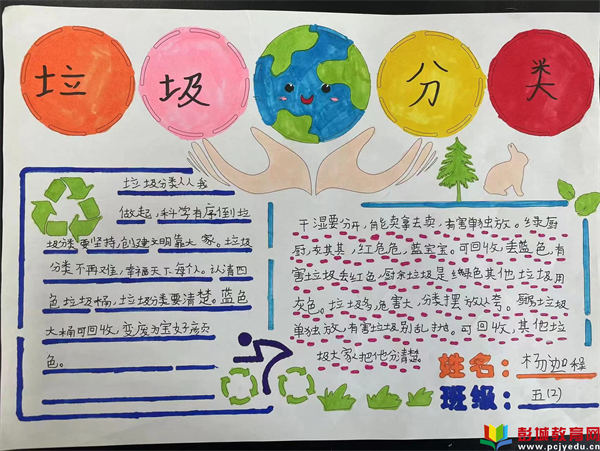 垃 圾 分 类
垃圾分类人人我
做起，科学有序倒垃
圾分类要坚持，创建文明靠大家。垃圾
分类不再难，幸福天下每个人。认清四
色垃圾桶，垃圾分类要清楚。蓝色
大桶可回收，变废为宝好
色。
干湿要分开，能卖拿去卖，有害单独放。绿厨
厨，灰其其，红色色，蓝宝宝。可回收丢蓝色，有
害垃圾丢红色，厨余垃圾是绿色其他垃圾用
灰色。垃圾多，危害大，分类摆放人夸。垃圾
单独放，有害垃圾别乱扌。可回收，其他垃
圾大家把他分清楚
姓名：杨
班级：五(2)
彭城教育网
www.pcjyedu.cn